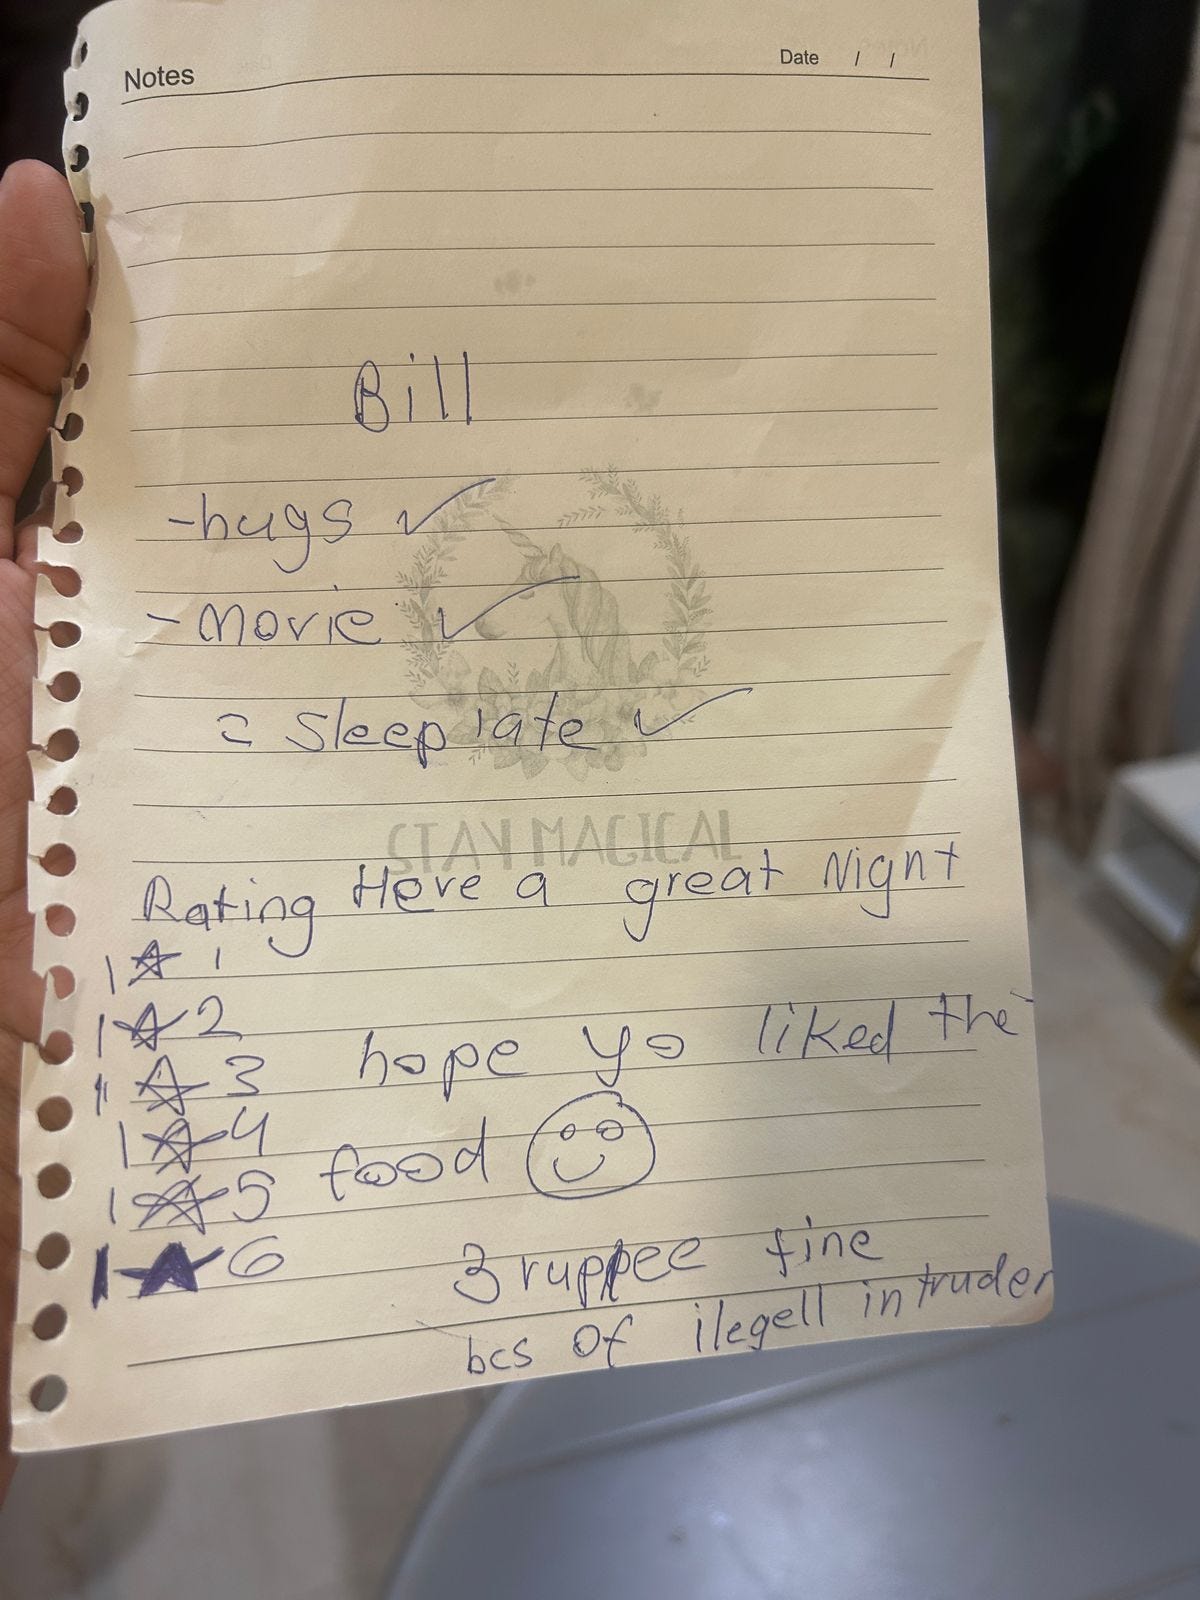 Notes
Date / /
Bill
- hugs ✓
- Movie ✓
= Sleep late ✓
STAY MAGICAL
Rating Heve a great Night
1 ☆ 1
1 ☆ 2
1 ☆ 3
hope yo liked the
1 ☆ 4
food ☺
1 ☆ 5
1 ★ 6
3 ruppee fine
bcs of ilegell intruder